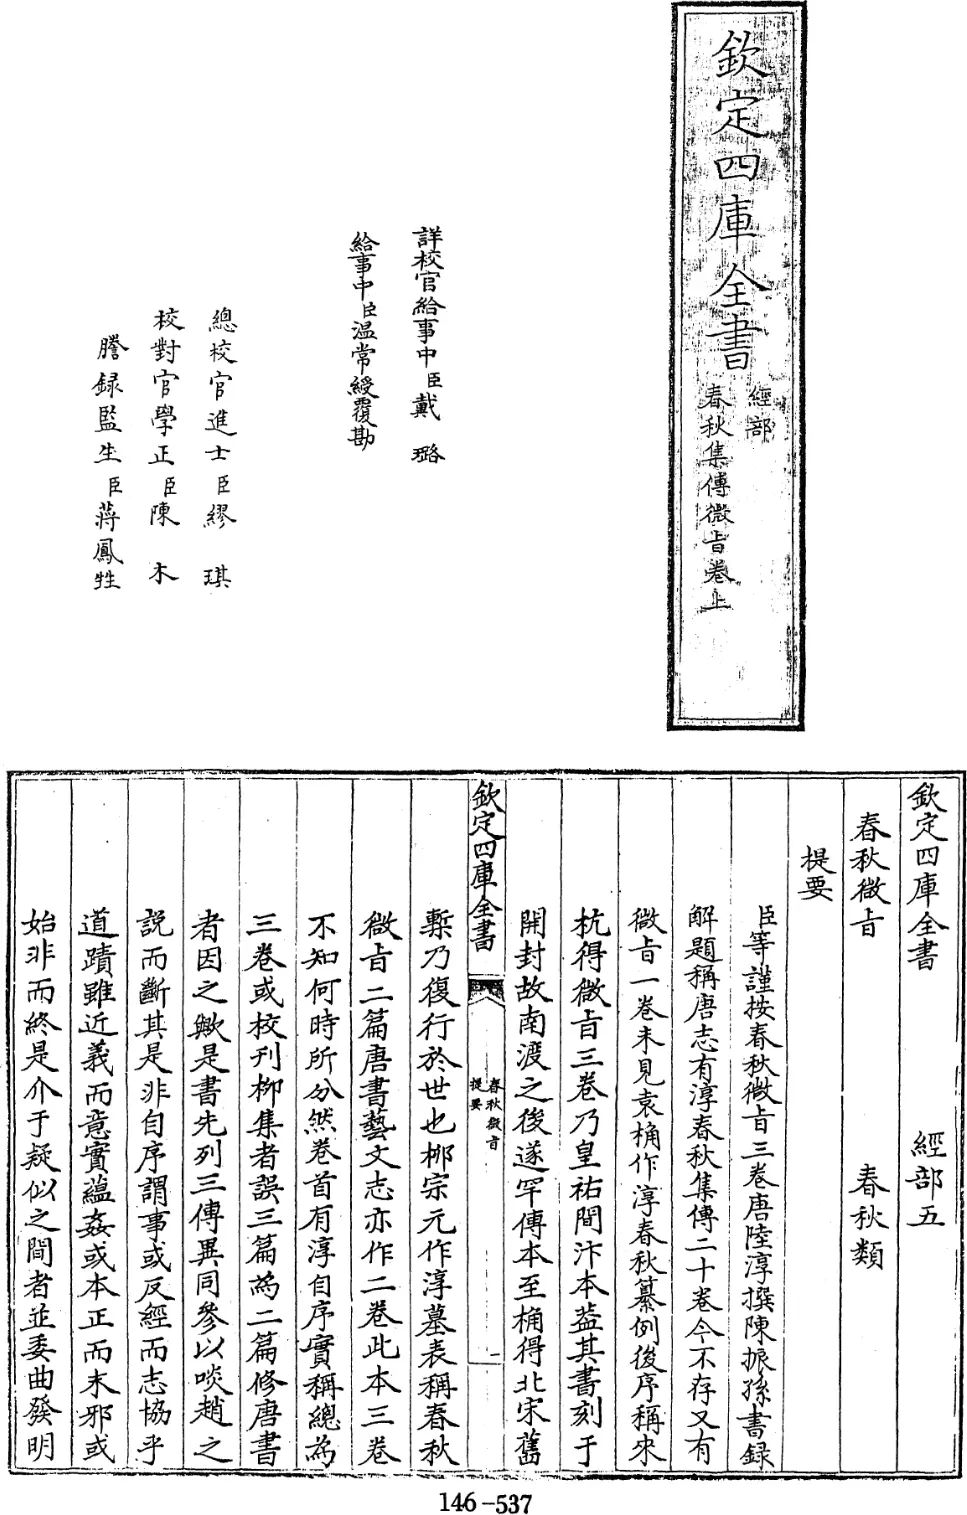 欽定四庫全書
經部
春秋集傳微旨卷上
詳校官給事中臣戴璐
給事中臣温常綬覆勘
總校官進士臣繆琪
校對官學正臣陳木
謄録監生臣蔣鳳牲
欽定四庫全書 經部五
春秋微旨 春秋類
提要
臣等謹按春秋微旨三卷唐陸淳撰陳振孫書録
解題稱唐志有淳春秋集傳二十卷今不存又有
微旨一卷未見袁桷作淳春秋纂例後序稱來
杭得微旨三卷乃皇祐間汴本葢其書刻于
開封故南渡之後遂罕傳本至桷得北宋舊
欽定四庫全書
春秋微旨
提要
一
槧乃復行於世也栁宗元作淳墓表稱春秋
微旨二篇唐書藝文志亦作二卷此本三卷
不知何時所分然卷首有淳自序實稱總為
三卷或校刋栁集者誤三篇為二篇修唐書
者因之歟是書先列三傳異同參以啖趙之
說而斷其是非自序謂事或反經而志協乎
道蹟雖近義而意實藴姦或本正而末邪或
始非而終是介于疑似之間者並委曲發明
146-537